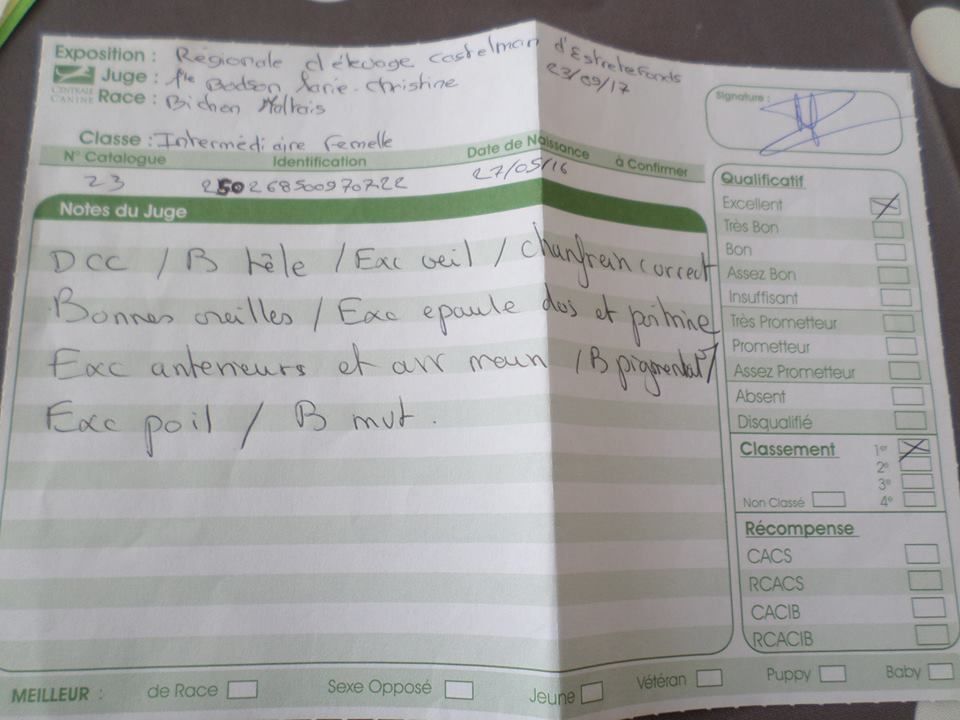 Exposition : Régionale d'élevage Castelmau d'Estretefonds
23/09/17
CENTRALE CANINE
Juge : Mle Bodson Marie-Christine
Race : Bichon Maltais
Signature :
Classe : Intermédiaire Femelle
N° Catalogue Identification Date de Naissance à Confirmer
23 250268500970722 27/05/16
Notes du Juge
DCC / B tête / Exc oeil / chanfrein correct
Bonnes oreilles / Exc epaule dos et poitrine
Exc anterieurs et arr main / B pigmentat° /
Exc poil / B mvt.
Qualificatif
Excellent
Très Bon
Bon
Assez Bon
Insuffisant
Très Prometteur
Prometteur
Assez Prometteur
Absent
Disqualifié
Classement 1er
2e
3e
Non Classé 4e
Récompense
CACS
RCACS
CACIB
RCACIB
MEILLEUR : de Race Sexe Opposé Jeune Vétéran Puppy Baby